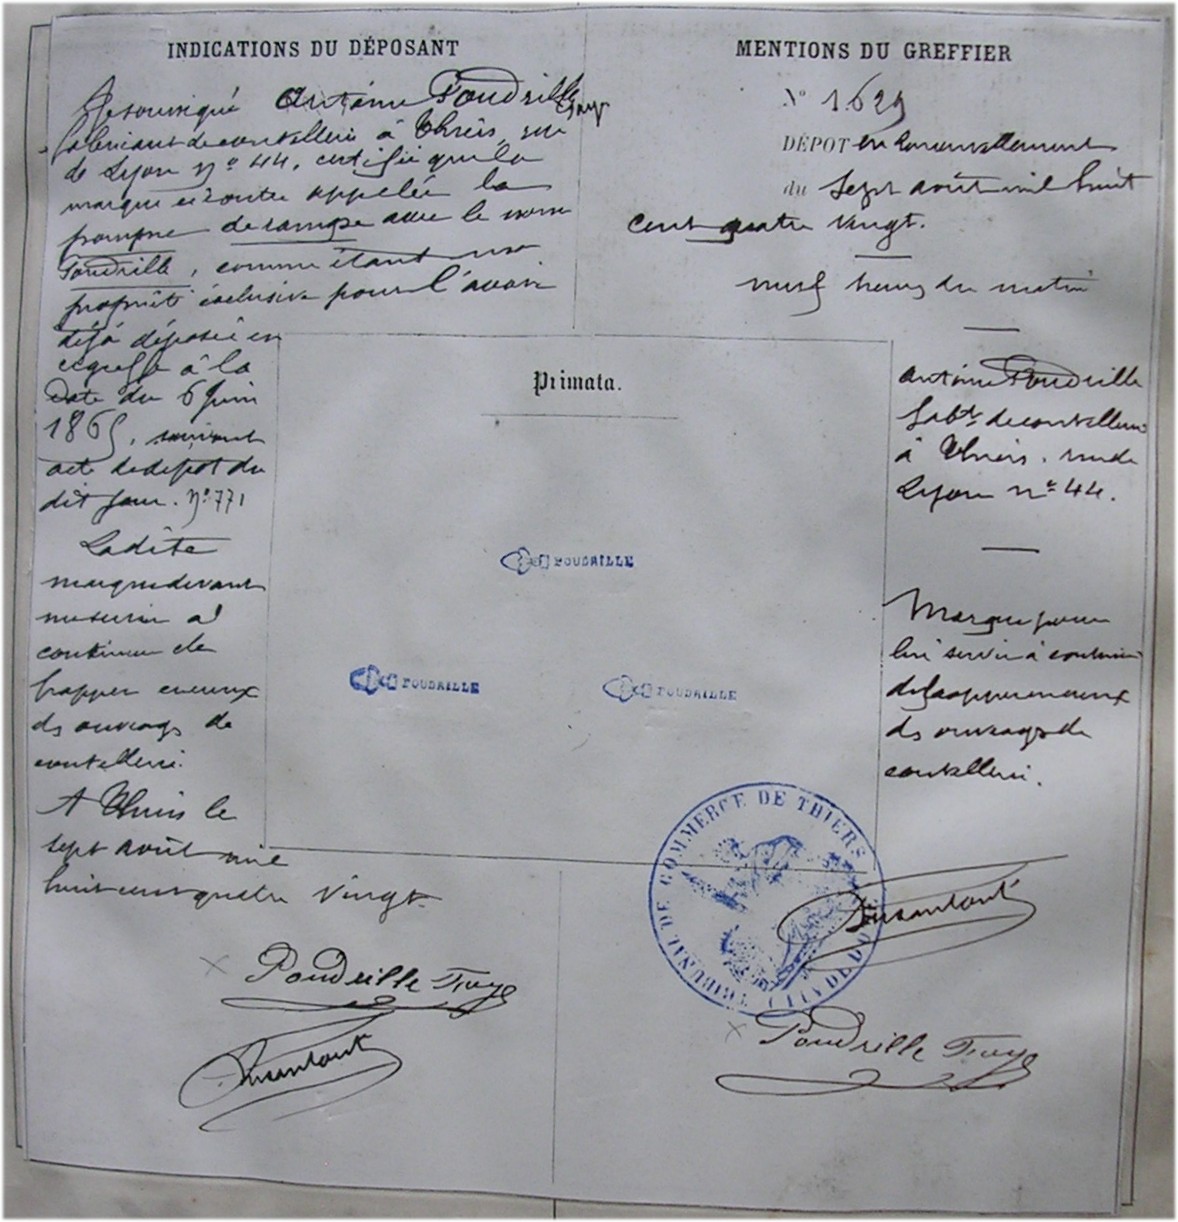 INDICATIONS DU DÉPOSANT
Je soussigné Antoine Poudrille
fabricant de coutellerie à Thiers, rue
de Lyon nº 44, certifie que la
marque ci contre appelée la
pompe de rampe avec le nom
Poudrille, comme étant ma
propriété exclusive pour l'avoir
déjà déposée en
ce greffe à la
date du 6 Juin
1865, suivant
acte de dépôt du
dit jour. Nº 771
Ladite
marque devant
me servir à
continuer de
frapper en creux
des ouvrages de
coutellerie.
A Thiers le
sept août mil
huit cent quatre vingt.
Poudrille
MENTIONS DU GREFFIER
Nº 1629
DÉPOT en renouvellement
du sept août mil huit
cent quatre vingt.
neuf heures du matin
Antoine Poudrille
fabt de coutellerie
à Thiers. rue de
Lyon nº 44.
Marque pour
lui servir à continuer
de frapper en creux
des ouvrages de
coutellerie.
Primata.
POUDRILLE
POUDRILLE
POUDRILLE
TRIBUNAL DE COMMERCE DE THIERS
Poudrille